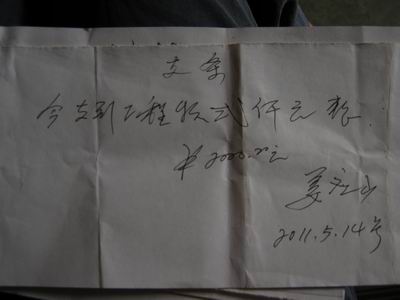 支条
今支到工程款式仟元整.
¥2000.00元
姜
2011.5.14号